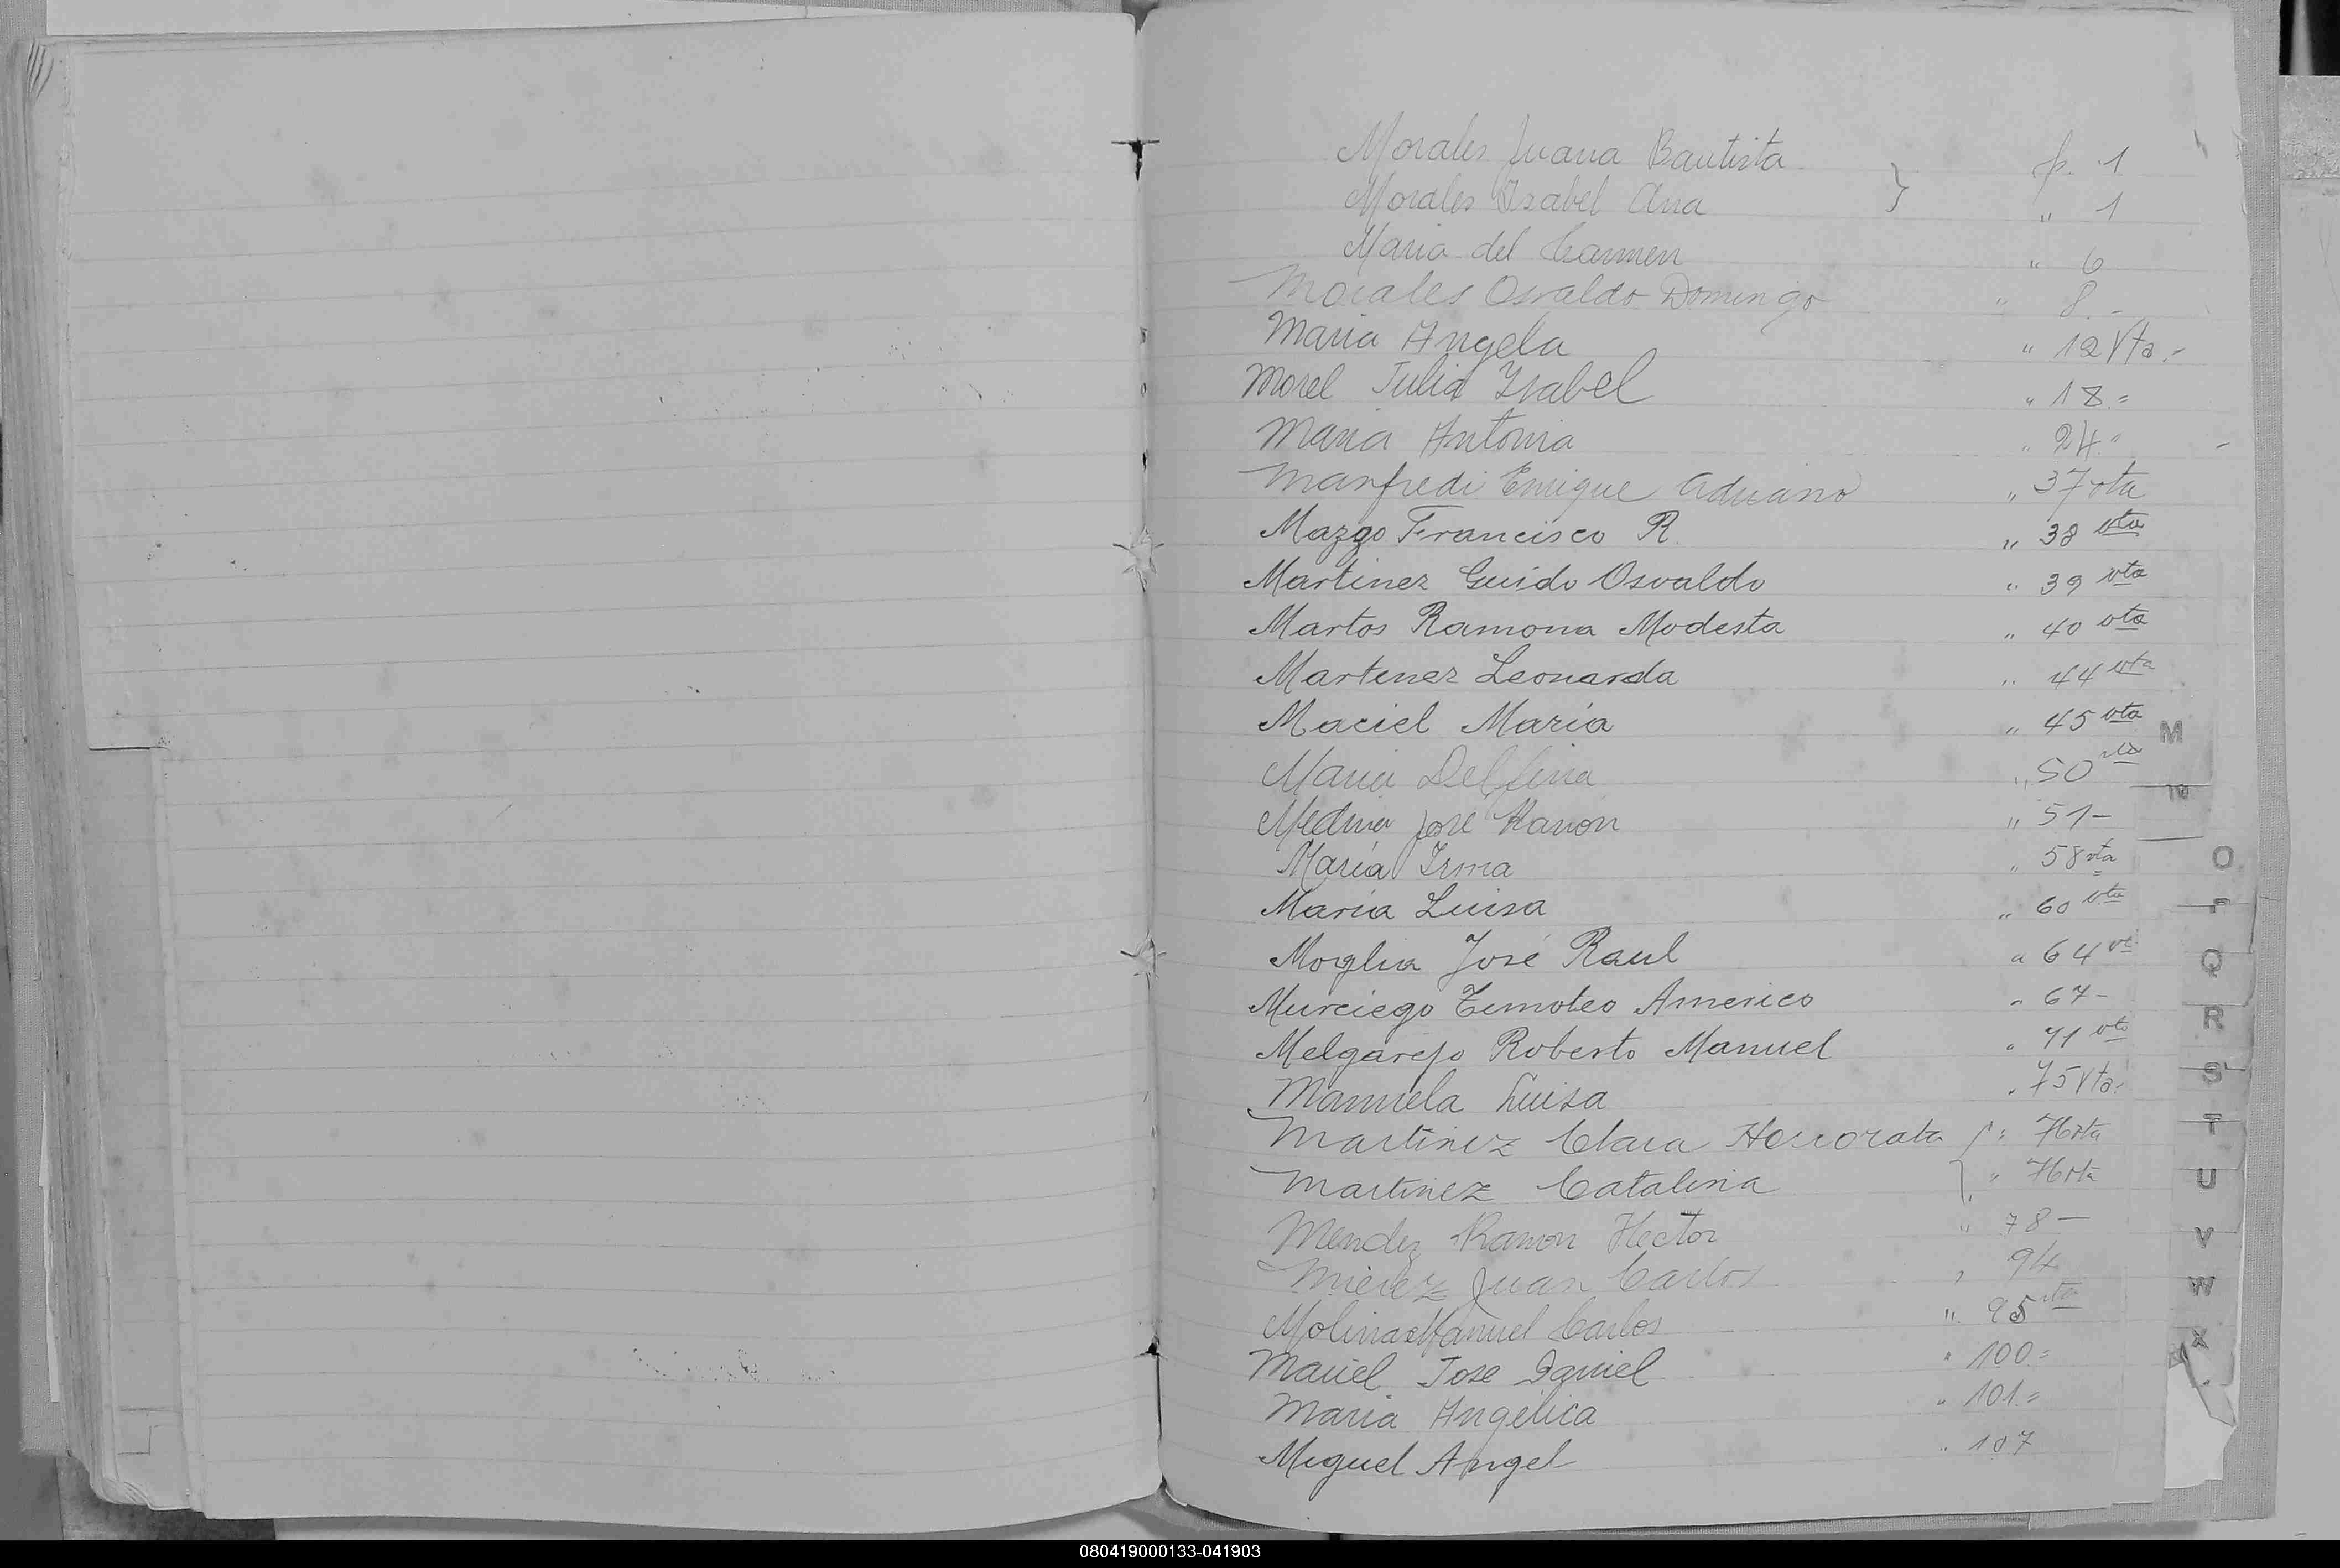 Morales Juana Bautista } p. 1
Morales Isabel Ana " 1
Maria del Carmen " 6
Morales Osvaldo Domingo " 8.-
Maria Angela " 12 Vta.-
Morel Julia Ysabel " 18.=
Maria Antonia " 24."
Manfredi Enrique Adriano " 37 vta
Mazgo Francisco R. " 38 vta
Martinez Guido Osvaldo " 39 vta
Martos Ramona Modesta " 40 vta
Martinez Leonarda " 44 vta
Maciel Maria " 45 vta
Maria Delfina " 50 vta
Medina José Ramon " 51-
María Irma " 58 vta
Maria Luisa " 60 vta
Moglia José Raul " 64 vta
Murciego Timoteo Americo " 67-
Melgarejo Roberto Manuel " 71 vta
Manuela Luisa " 75 Vta.
Martinez Clara Honorata " 76 vta
Martinez Catalina " 76 vta
Mendez Ramon Hector " 78-
Mierez Juan Carlos " 94
Molina Manuel Carlos " 95 vta
Maciel Jose Daniel " 100=
Maria Angelica " 101.=
Miguel Angel " 107
M
O
P
Q
R
S
T
U
V
W
X
080419000133-041903